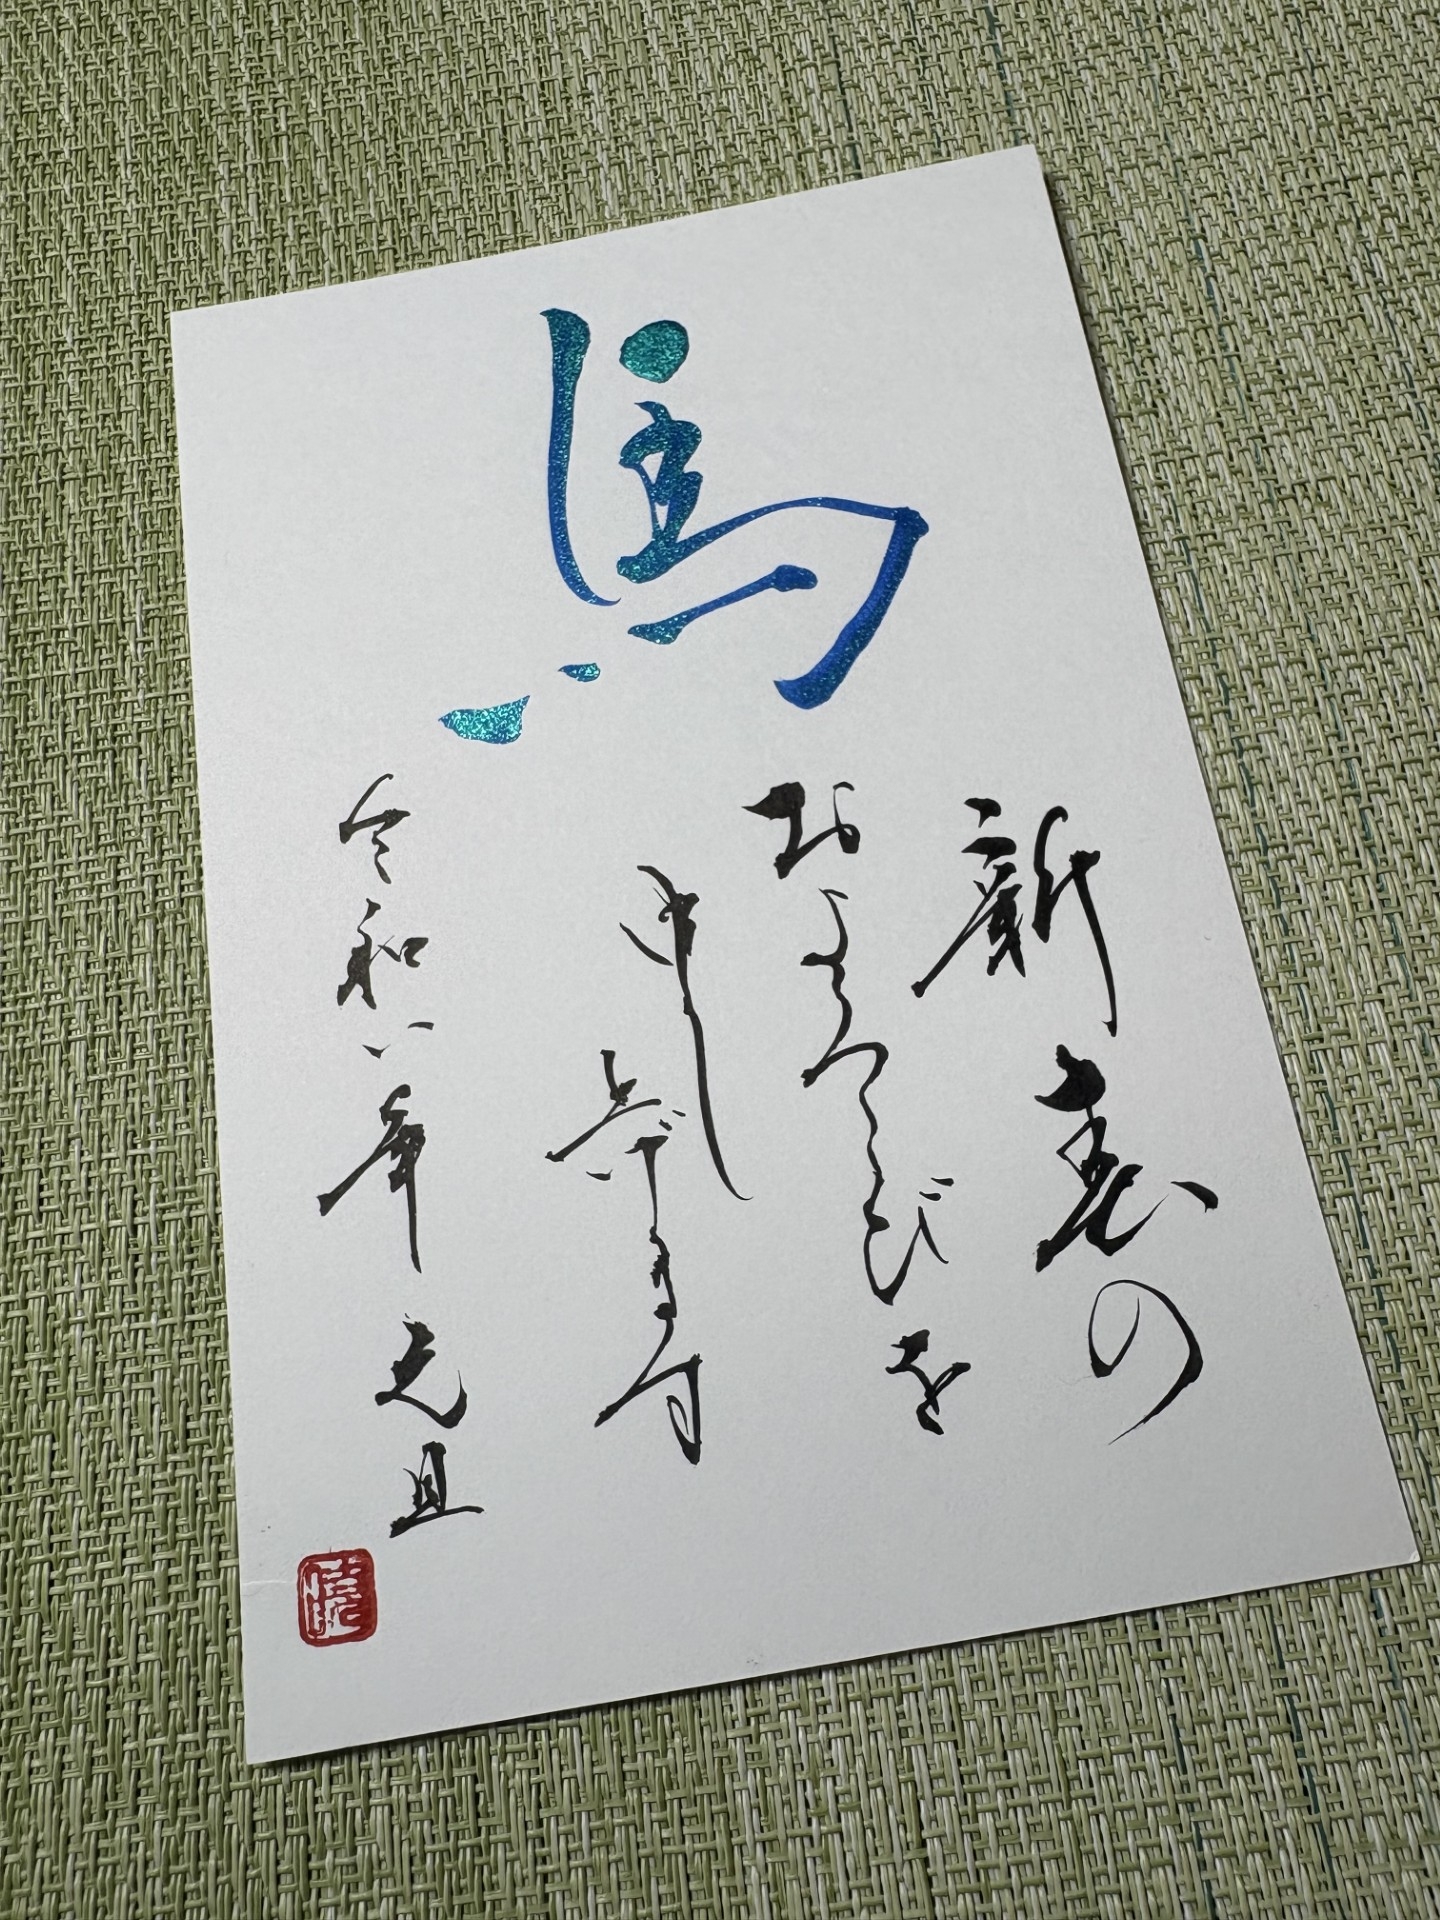 馬
新春の
およろこびを
申し上げます
令和八年 元旦